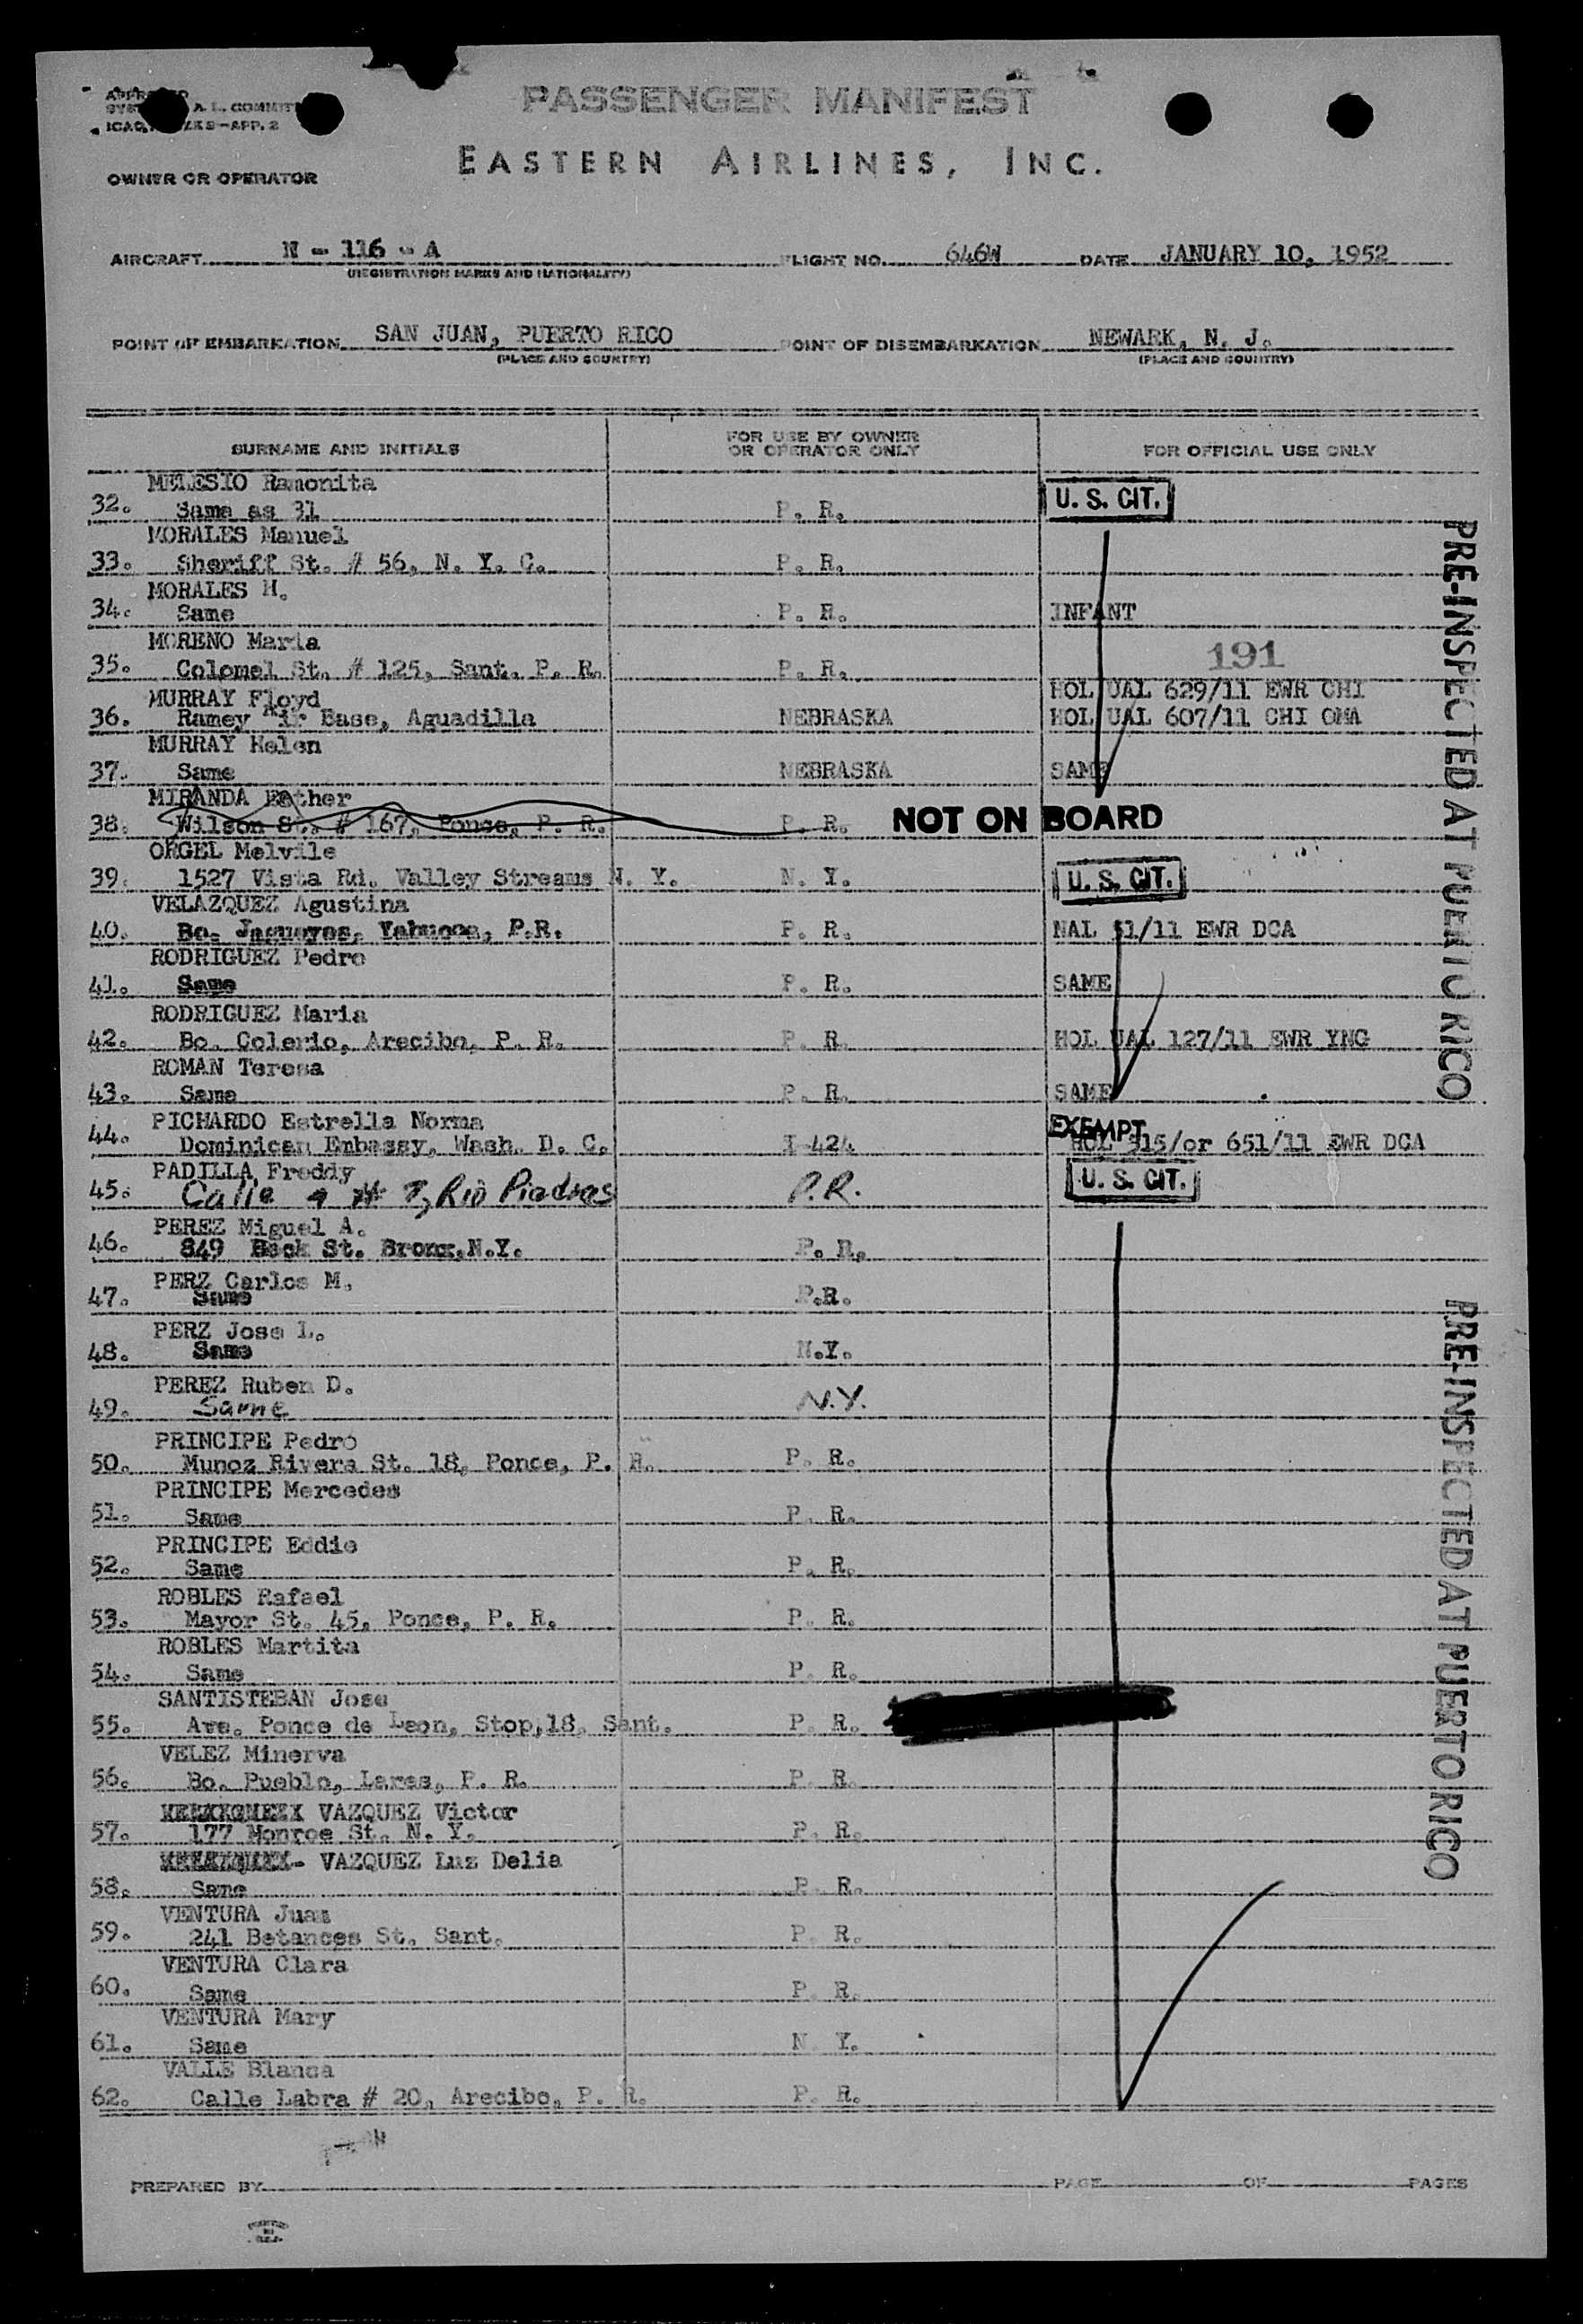 PASSENGER MANIFEST
EASTERN AIRLINES, INC.
OWNER OR OPERATOR
AIRCRAFT N - 116 - A FLIGHT NO. 646W DATE JANUARY 10, 1952
(REGISTRATION MARKS AND NATIONALITY)
POINT OF EMBARKATION SAN JUAN, PUERTO RICO POINT OF DISEMBARKATION NEWARK, N. J.
(PLACE AND COUNTRY) (PLACE AND COUNTRY)
SURNAME AND INITIALS FOR USE BY OWNER OR OPERATOR ONLY FOR OFFICIAL USE ONLY
MELESIO Ramonita
32. Same as 31 P. R. U. S. CIT.
MORALES Manuel
33. Sheriff St. # 56, N. Y. C. P. R.
MORALES H.
34. Same P. R. INFANT
MORENO Maria 191
35. Colomel St. # 125, Sant. P. R. P. R.
MURRAY Floyd HOL UAL 629/11 EWR CHI
36. Ramey Air Base, Aguadilla NEBRASKA HOL UAL 607/11 CHI OMA
MURRAY Helen
37. Same NEBRASKA SAME
MIRANDA Esther
38. Wilson St. # 167, Ponce, P. R. P. R. NOT ON BOARD
ORGEL Melvile
39. 1527 Vista Rd. Valley Streams N. Y. N. Y. U. S. CIT.
VELAZQUEZ Agustina
40. Bo. Jagueyes, Yabucoa, P.R. P. R. NAL 51/11 EWR DCA
RODRIGUEZ Pedro
41. Same P. R. SAME
RODRIGUEZ Maria
42. Bo. Colerio, Arecibo, P. R. P. R. HOL UAL 127/11 EWR YNG
ROMAN Teresa
43. Same P. R. SAME
PICHARDO Estrella Norma EXEMPT
44. Dominican Embassy, Wash. D. C. I-424 HOL 515/or 651/11 EWR DCA
PADILLA Freddy
45. Calle 9 # 7, Rio Piedras P.R. U. S. CIT.
PEREZ Miguel A.
46. 849 Beck St. Bronx,N.Y. P. R.
PERZ Carlos M.
47. Same P.R.
PERZ Jose L.
48. Same N.Y.
PEREZ Ruben D.
49. Same N.Y.
PRINCIPE Pedro
50. Munoz Rivera St. 18, Ponce, P. R. P. R.
PRINCIPE Mercedes
51. Same P. R.
PRINCIPE Eddie
52. Same P. R.
ROBLES Rafael
53. Mayor St. 45, Ponce, P. R. P. R.
ROBLES Martita
54. Same P. R.
SANTISTEBAN Jose
55. Ave. Ponce de Leon, Stop,18, Sant. P. R.
VELEZ Minerva
56. Bo. Pueblo, Lares, P. R. P. R.
VAZQUEZ Victor
57. 177 Monroe St. N. Y. P. R.
VAZQUEZ Luz Delia
58. Same P. R.
VENTURA Juan
59. 241 Betances St. Sant. P. R.
VENTURA Clara
60. Same P. R.
VENTURA Mary
61. Same N. Y.
VALLE Blanca
62. Calle Labra # 20, Arecibo, P. R. P. R.
PREPARED BY PAGE OF PAGES
PRE-INSPECTED AT PUERTO RICO
PRE-INSPECTED AT PUERTO RICO